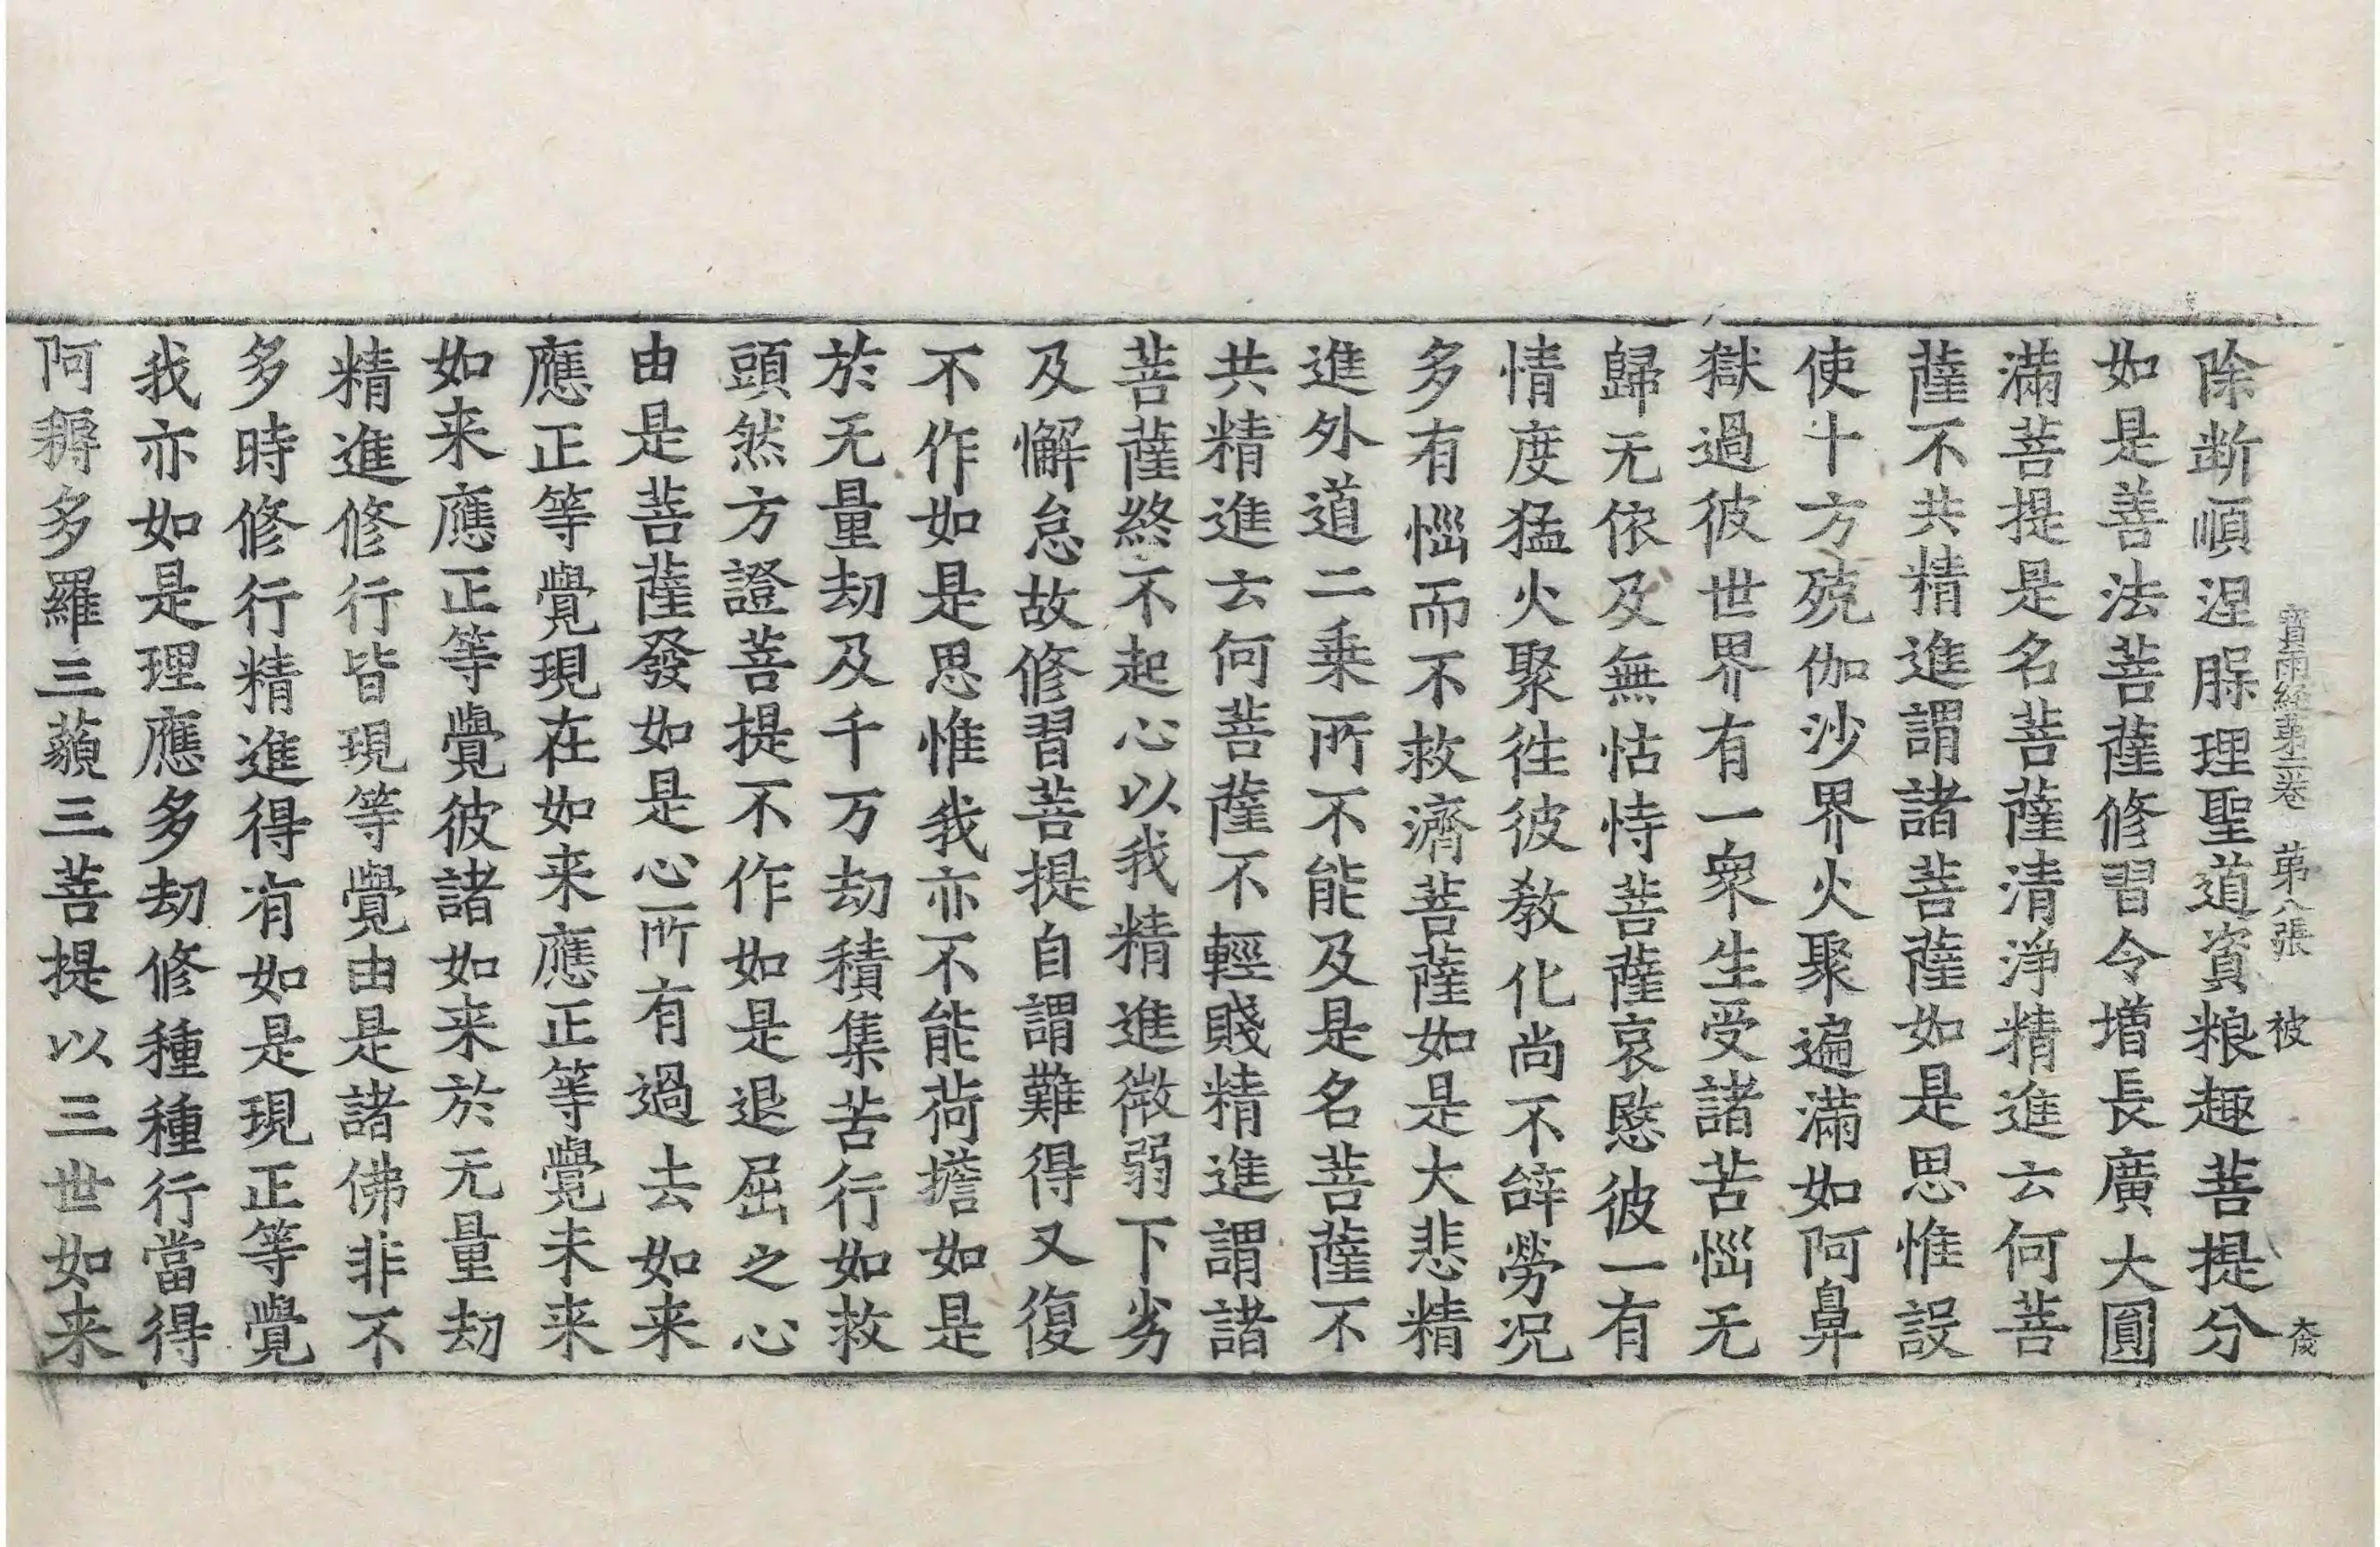 寶雨經第二卷 第八張 被 大戌
除斷順涅槃理聖道資粮趣菩提分
如是善法菩薩修習令增長廣大圓
滿菩提是名菩薩清淨精進云何菩
薩不共精進謂諸菩薩如是思惟設
使十方殑伽沙界火聚遍滿如阿鼻
獄過彼世界有一衆生受諸苦惱无
歸无依及無怙恃菩薩哀愍彼一有
情度猛火聚徃彼教化尚不辝勞况
多有惱而不救濟菩薩如是大悲精
進外道二乗所不能及是名菩薩不
共精進云何菩薩不輕賤精進謂諸
菩薩終不起心以我精進微弱下劣
及懈怠故修習菩提自謂難得又復
不作如是思惟我亦不能荷擔如是
於无量劫及千万劫積集苦行如救
頭然方證菩提不作如是退屈之心
由是菩薩發如是心所有過去如来
應正等覺現在如来應正等覺未来
如来應正等覺彼諸如来於无量劫
精進修行皆現等覺由是諸佛非不
多時修行精進得有如是現正等覺
我亦如是理應多劫修種種行當得
阿耨多羅三藐三菩提以三世如来